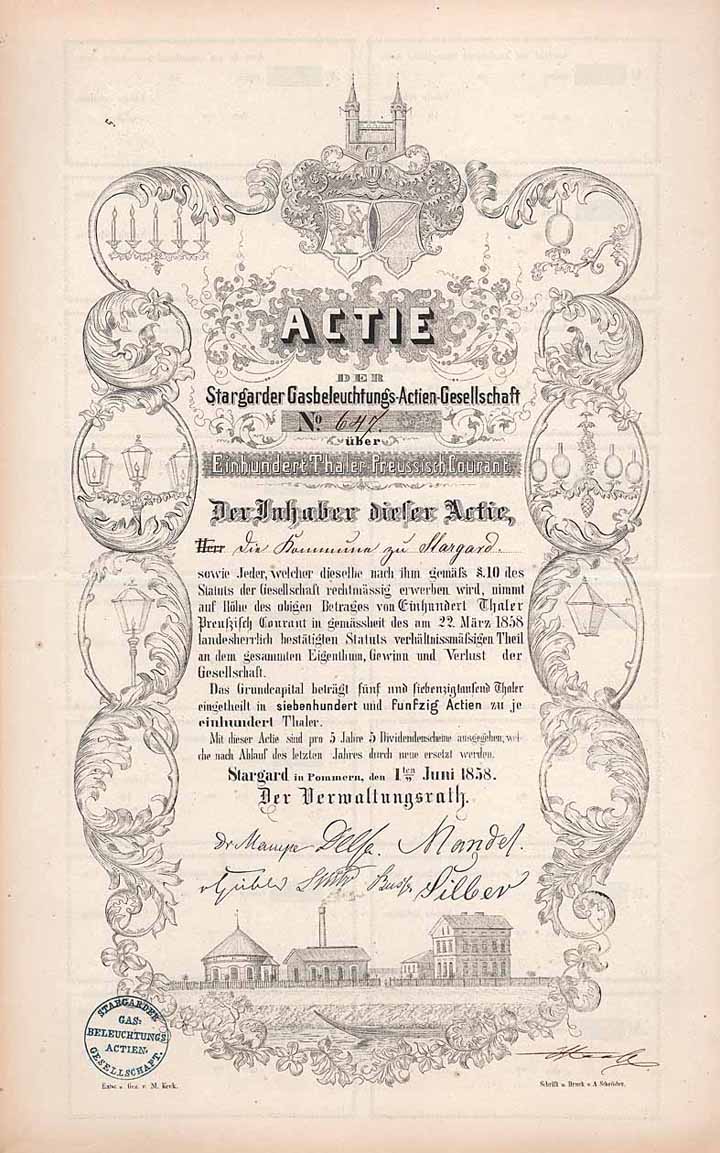 ACTIE
DER
Stargarder Gasbeleuchtungs-Actien-Gesellschaft
No 647.
über
Einhundert Thaler Preussisch Courant
Der Inhaber dieser Actie,
Herr die Kommune zu Stargard.
sowie Jeder, welcher dieselbe nach ihm gemäſs §.10 des
Statuts der Gesellschaft rechtmässig erwerben wird, nimmt
auf Höhe des obigen Betrages von Einhundert Thaler
Preuſsisch Courant in gemässheit des am 22. März 1858
landesherrlich bestätigten Statuts verhältnissmäſsigen Theil
an dem gesammten Eigenthum, Gewinn und Verlust der
Gesellschaft.
Das Grundcapital beträgt fünf und siebenzigtausend Thaler
eingetheilt in siebenhundert und funfzig Actien zu je
einhundert Thaler.
Mit dieser Actie sind pro 5 Jahre 5 Dividendenscheine ausgegeben, wel-
che nach Ablauf des letzten Jahres durch neue ersetzt werden.
Stargard in Pommern, den 1ten Juni 1858.
Der Verwaltungsrath.
Dr Mampe Mandel.
Silber
STARGARDER
GAS-
BELEUCHTUNGS
ACTIEN-
GESELLSCHAFT.
Entw. u. Gez. v. M. Keck.
Schrift u. Druck v. A Schröder.